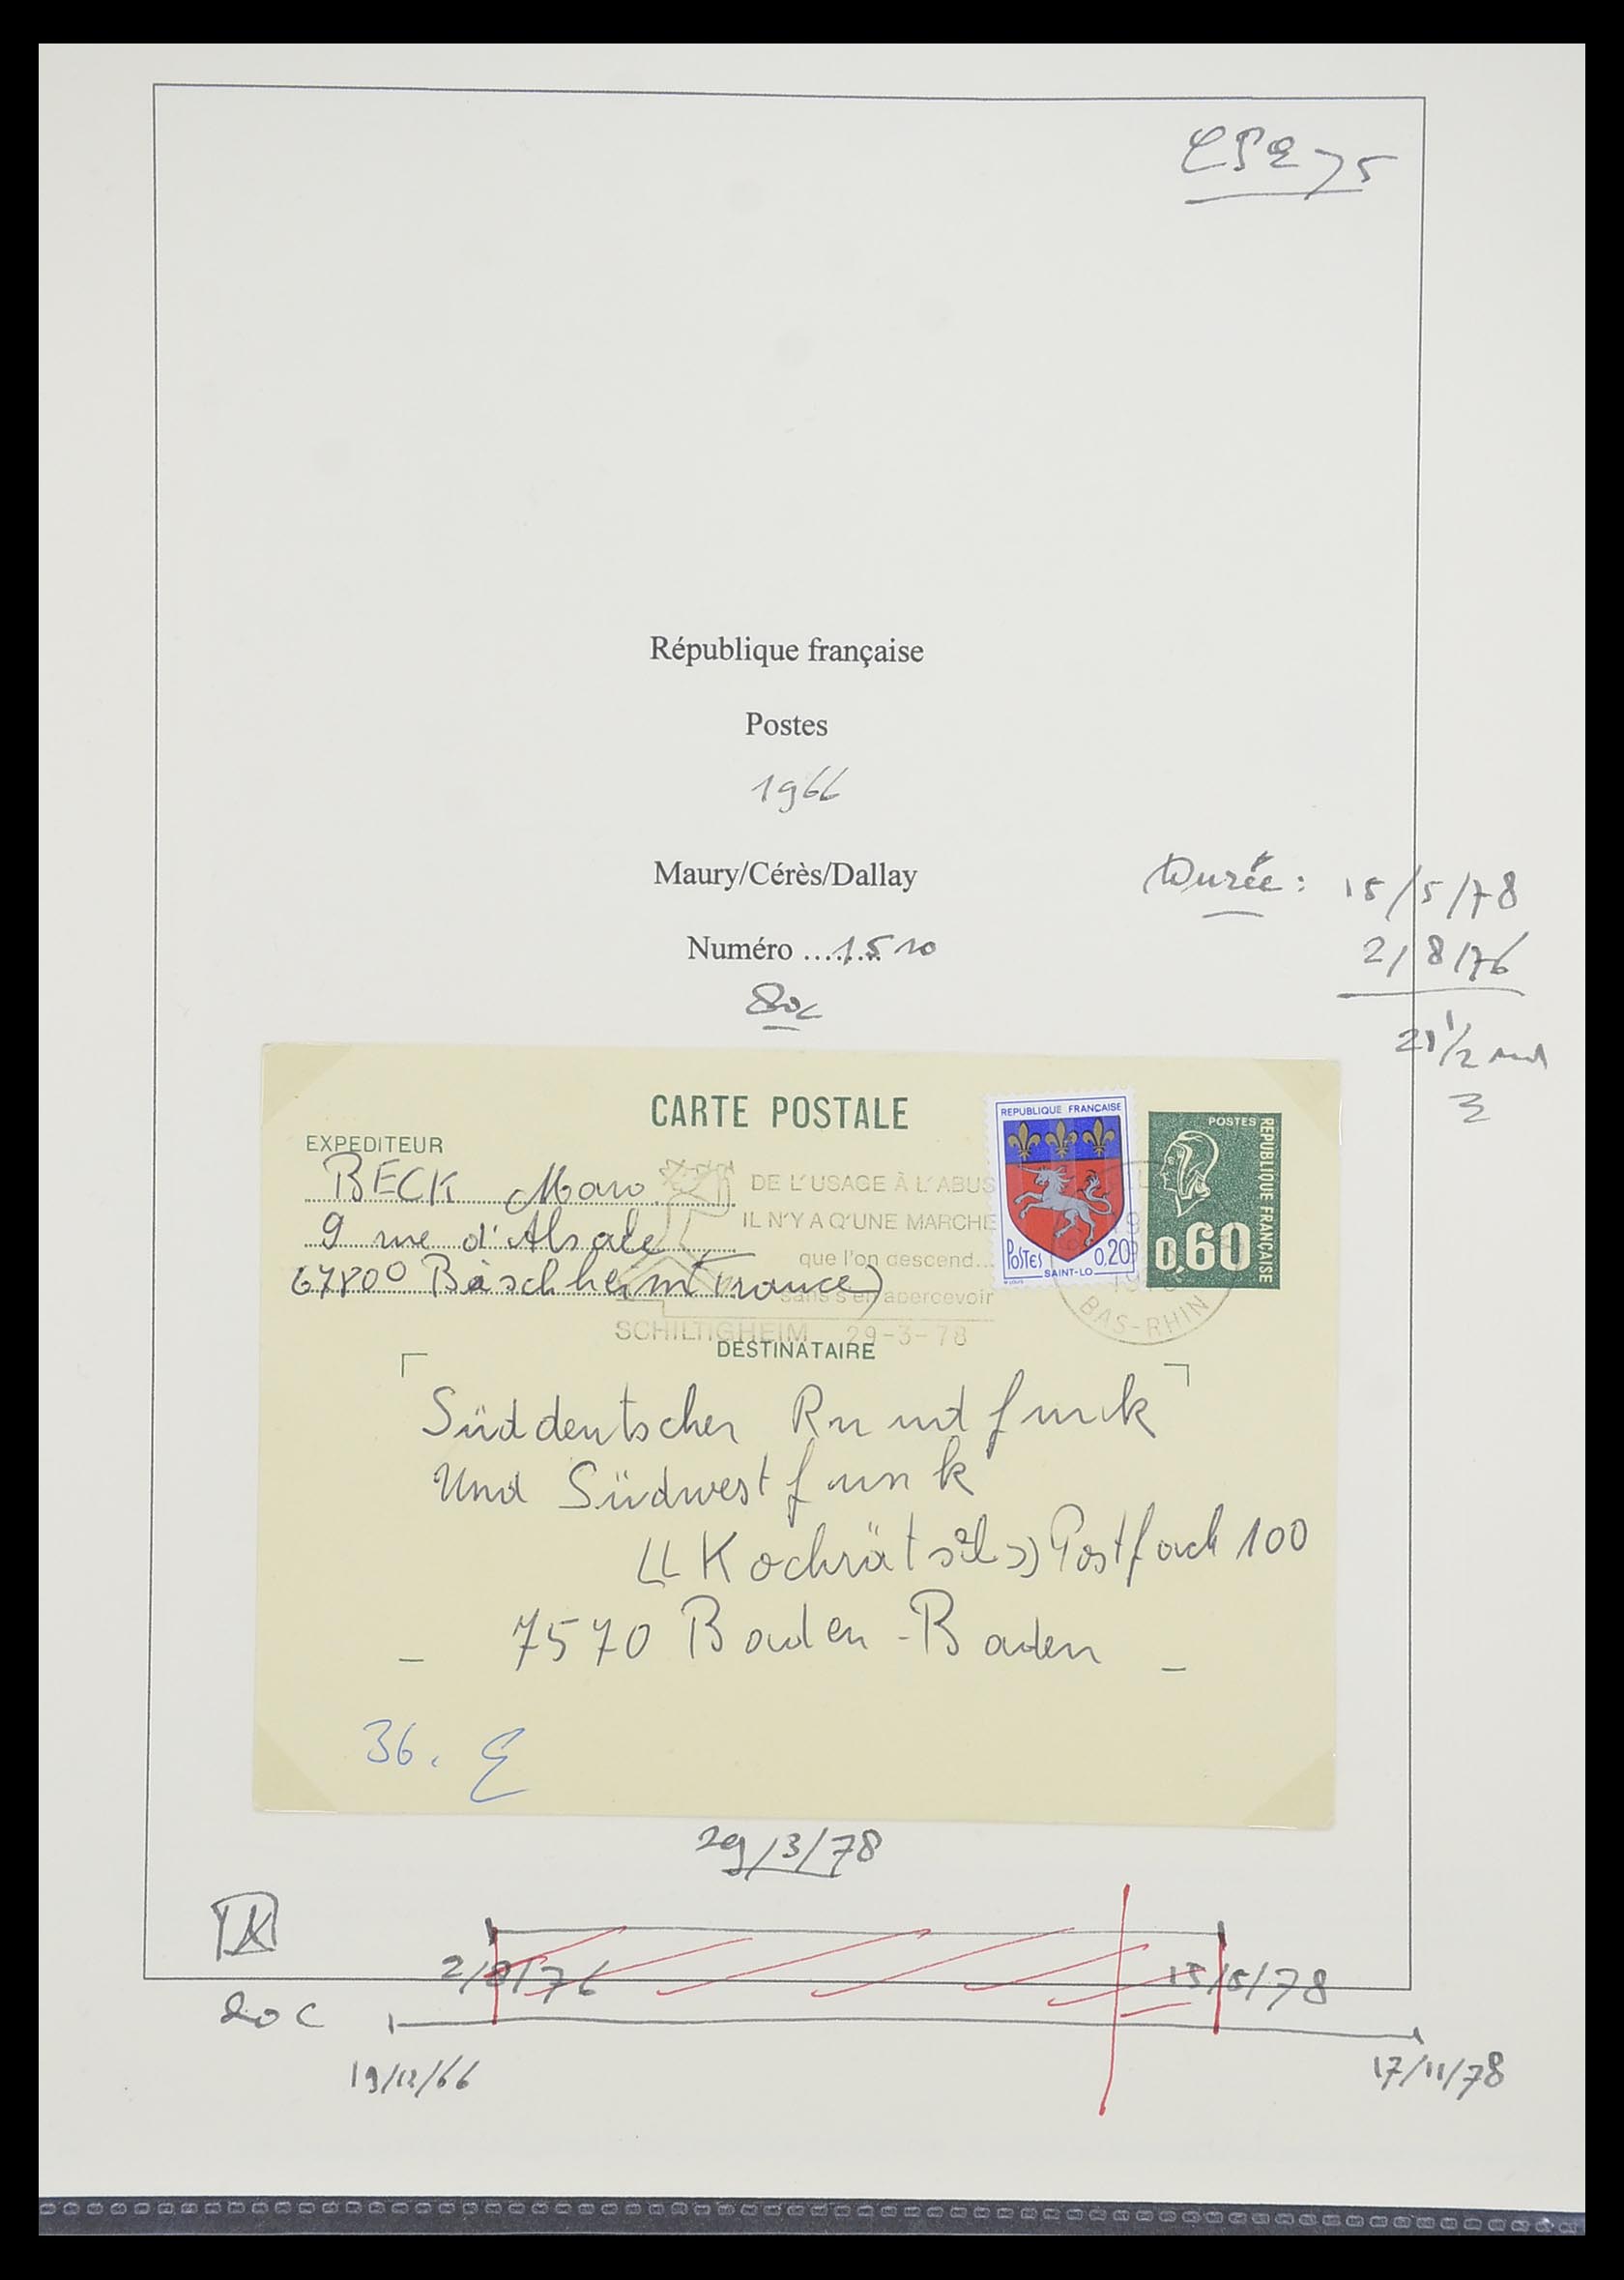 CPE 75
République française
Postes
1966
Maury/Cérès/Dallay
Numéro ........1510
80c
Durée : 15/5/78
2/8/76
21 1/2
CARTE POSTALE
EXPEDITEUR
BECK Marc
9 rue d'Alsace
67800 Bischheim (France)
DE L'USAGE À L'ABUS
IL N'Y A Q'UNE MARCHE
que l'on descend...
sans s'en apercevoir
SCHILTIGHEIM 29-3-78
REPUBLIQUE FRANÇAISE
POSTES 0,20
SAINT-LO
POSTES
REPUBLIQUE FRANÇAISE
0,60
BAS-RHIN
DESTINATAIRE
Süddeutscher Rundfunk
Und Südwestfunk
«Kochrätsel» Postfach 100
7570 Baden-Baden
36.
29/3/78
2/8/76
15/5/78
20c
19/12/66
17/11/78